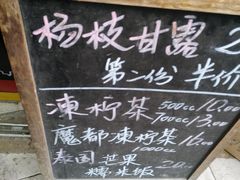 杨枝甘露 2
第二份 半价
凍柠茶 500cc/10.00
700cc/13.00
魔都凍柠茶 16.00
1000cc
泰国芒果 20.
糯米饭